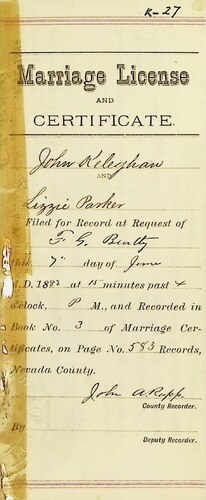 K-27
Marriage License
AND
CERTIFICATE.
John Keleghan
AND
Lizzie Parker
Filed for Record at Request of
F. G. Beatty
this 7" day of June
A.D. 1882 at 15 minutes past 4
o'clock, P M., and Recorded in
Book No. 3 of Marriage Cer-
tificates, on Page No. 583 Records,
Nevada County.
John A. Rapp
County Recorder.
By
Deputy Recorder.